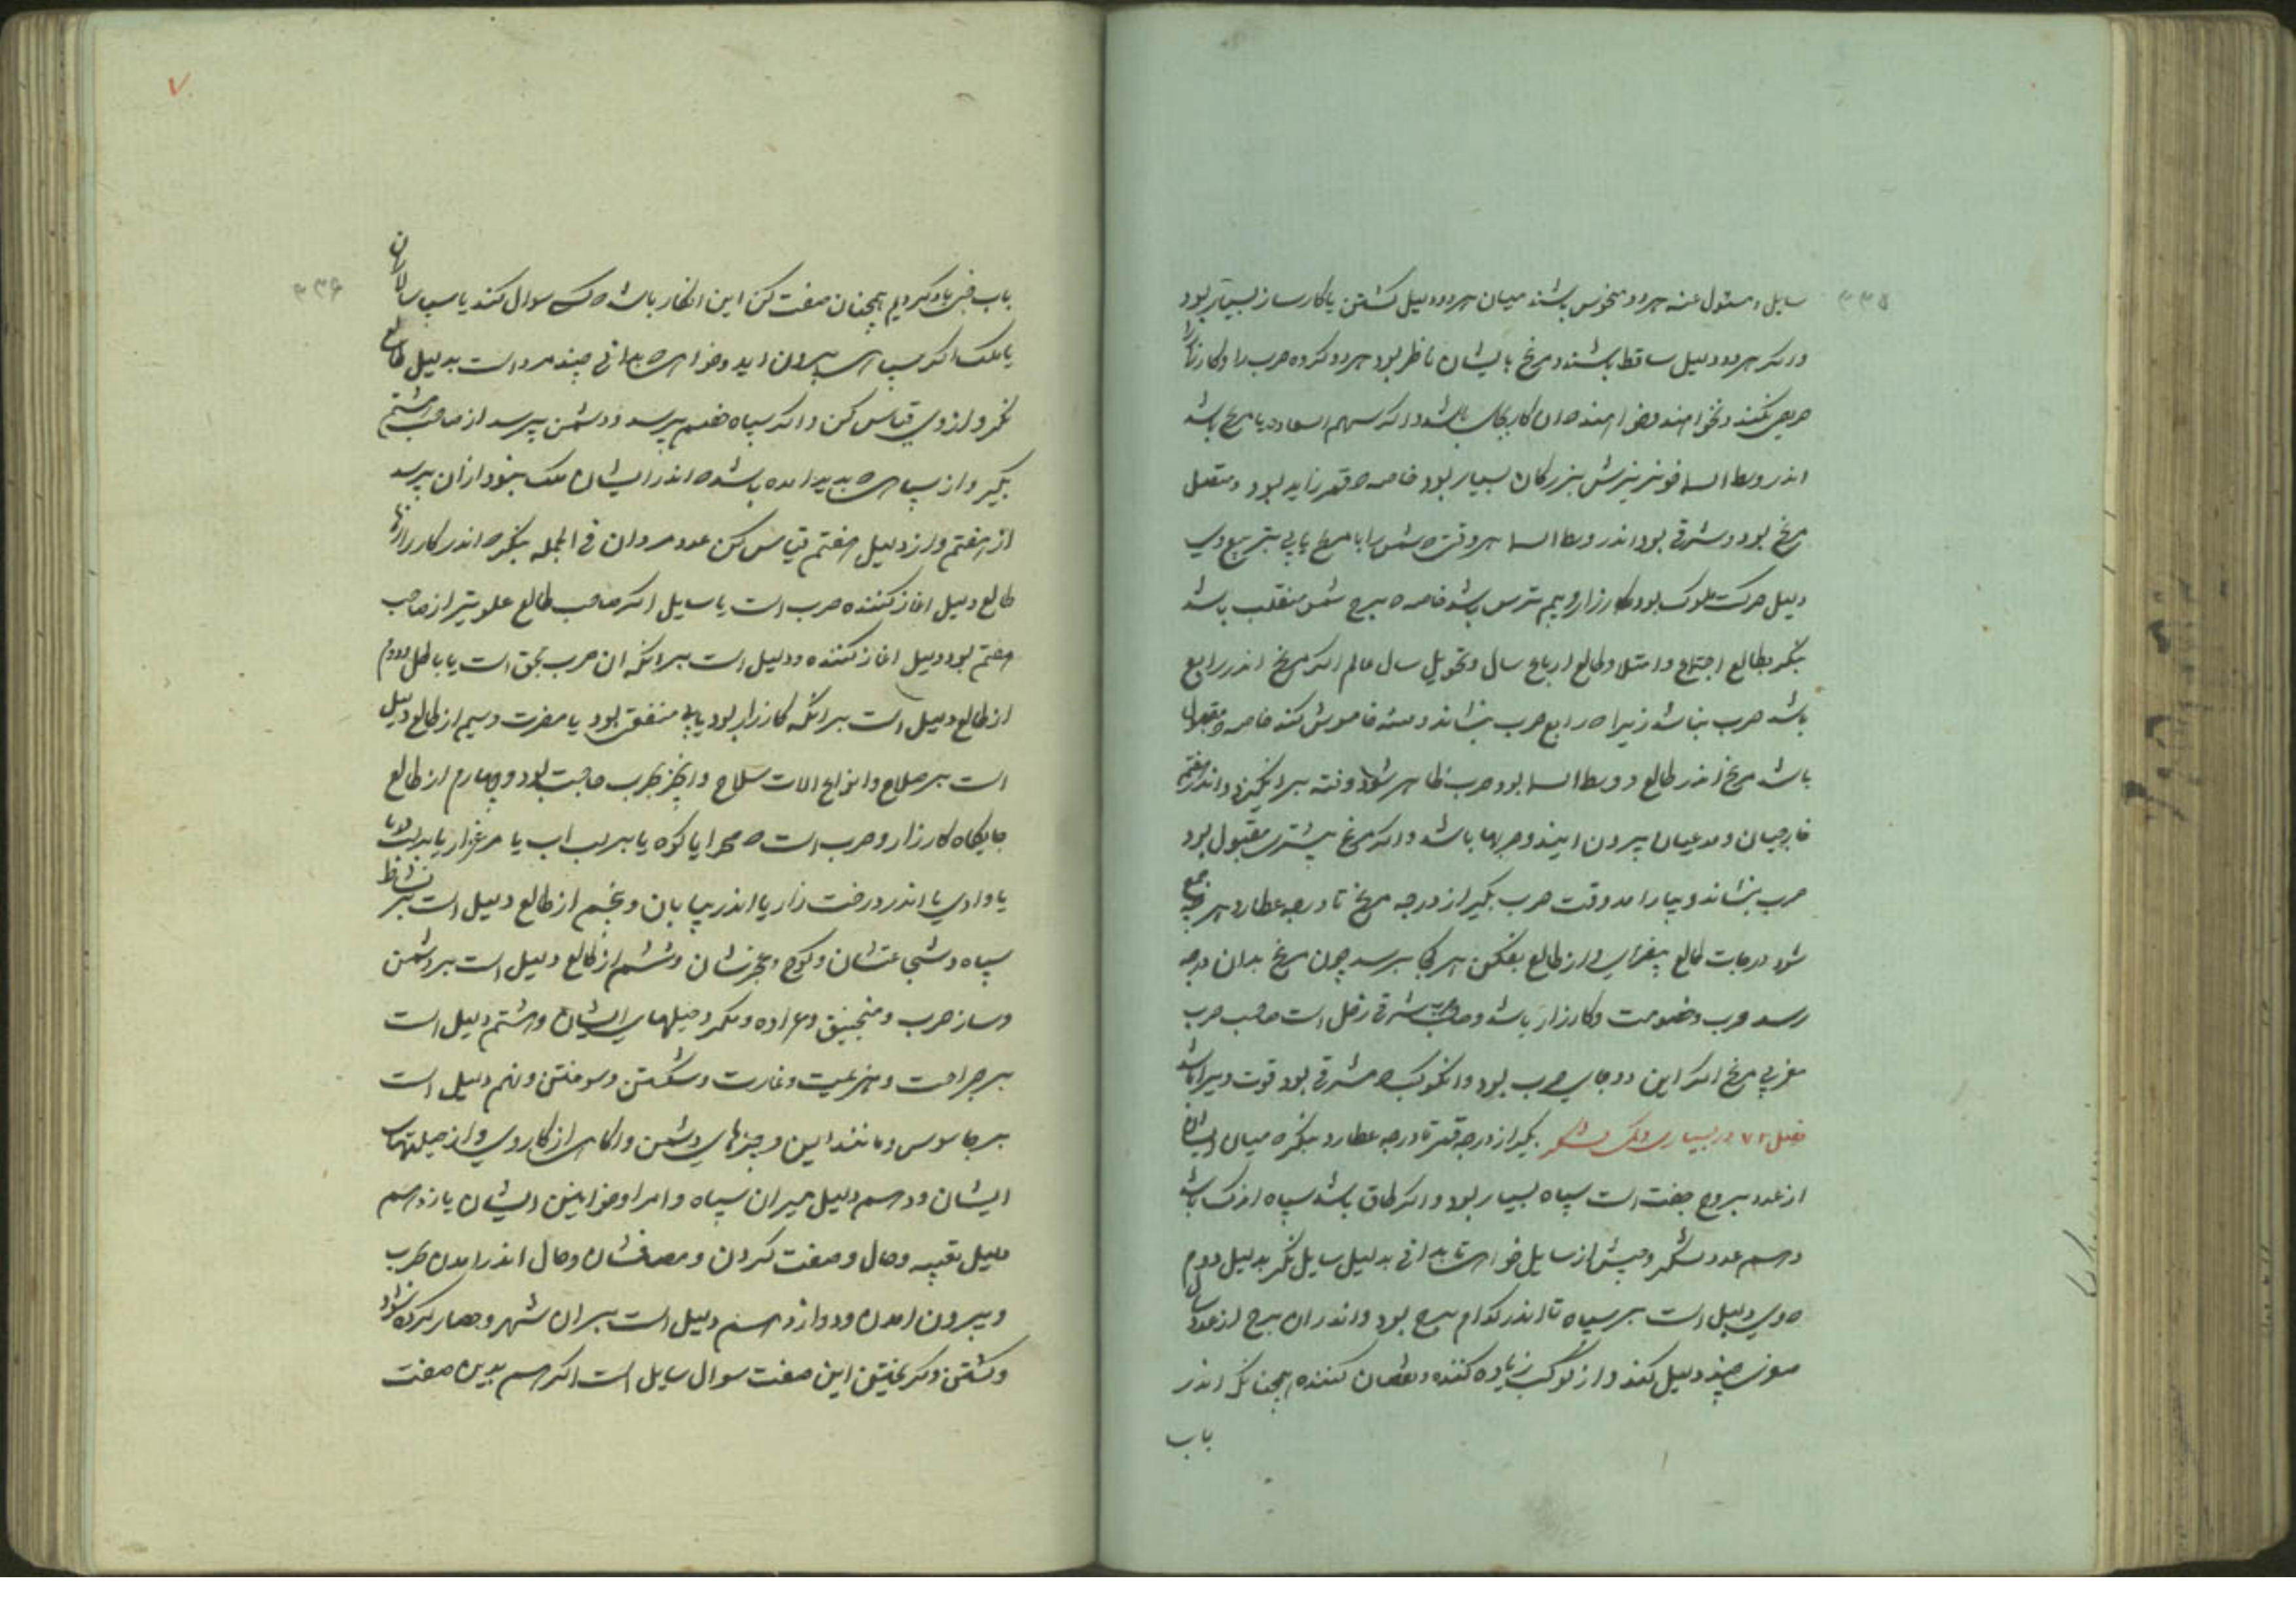 ۳۳۵
سایل و مسئول عنه هر دو منحوس باشند میان هر دو دلیل کشتن یا کارساز بسیار بود
و دیگر هر دو دلیل ساقط باشند و مریخ بایشان ناظر بود هر دو کروه حرب را و کارزار را
حریص نکنند و نخواهند و اگر سهم السعاده یا مریخ باشد
اندر وسط السما خونریزش بزرکان بسیار بود خاصه ه قمر زاید بود و متصل
مریخ بود و شرقی بود اندر وسط السما هر وقت ه شمس را با مریخ یابی بتربیع وی
دلیل حرکت ملوک بود و کارزار و بیم و ترس باشد خاصه ه برج شمس منقلب باشد
بنکر بطالع اجتماع و امتلا و طالع ارباع سال و تحویل سال عالم اکر مریخ اندر رابع
باشد حرب نباشد زیرا ه رابع حرب بنشاند و فتنه خاموش کند خاصه ه مقبول
باشد مریخ اندر طالع و وسط السما بود حرب ظاهر شود و فتنه برانکیزد و اندر هفتم
خارجیان و مدعیان بیرون ایند و حربها باشد و اکر مریخ بمشتری مقبول بود
حرب بنشاند و بیارامد وقت حرب بکیر از درجه مریخ تا درجه عطارد هر چه جمع
شود درجات طالع بیفزای و از طالع بفکن هر کجا برسد چون مریخ بدان درجه
رسد حرب و خصومت و کارزار باشد و صاحب شرقی زحل است صاحب حرب
مغربی مریخ اکر این دو جای حرب بود و انکوکب ه مشرقی بود قوت ویرا باشد
فصل ۷۲ در بسیاری و اندکی لشکر بکیر از درجه قمر تا درجه عطارد بنکر ه میان ایشان
از عدد بروج جفت است سپاه بسیار بود و اکر طاق باشد سپاه اندک باشد
و رسم عدد لشکر و جیش از سایل خواهی تا بدانی بدلیل سایل نکر بدلیل دوم
ه وی دلیل است بر سپاه تا اندر کدام برج بود و اندران برج از عدد سال
صغری چند دلیل کند و از کوکب زیاده کننده و نقصان کننده همچنانک اندر
باب
۷
۳۳۶
باب قبل یاد کردیم همچنان صفت کن این انکار باشد ه کسی سوال کند یا سپاسالاران
یا ملک اکر سپاهی بیرون اید و خواهی ه بدانی چند مرد است بدلیل طالع
نکر و از وی قیاس کن و اکر سپاه خصم پرسد و دشمن پرسد از صاحب هشتم
بکیر و از سپاهی ه بدید امده باشد ه اندر ایشان ملک بنود از ان پرسد
از هفتم و از دلیل هفتم قیاس کن عدد مردان فی الجمله بنکر ه اندر کارزارها
طالع دلیل اغاز کننده حرب است یا سایل اکر صاحب طالع علویتر از صاحب
هفتم بود دلیل اغاز کننده و دلیل است برانکه ان حرب بحق است یا باطل و دوم
از طالع دلیل است برانکه کارزار بود یا بی منفعت بود یا مضرت و سیم از طالع دلیل
است بر صلاح و انواع الات سلاح و انچه بحرب حاجت بود و چهارم از طالع
جایکاه کارزار و حرب است ه صحرا یا کوه یا بر لب اب یا مرغزار یا بر لب دریا
یا وادی یا اندر درخت زار یا اندر بیابان و پنجم از طالع دلیل است بر نشاط
سپاه و شجاعتشان و کوچ و عجزشان و ششم از طالع دلیل است بر دشمن
و ساز حرب و منجنیق و عراده و مکر و حیلهای ایشان و هشتم دلیل است
بر جراحت و هزیمت و غارت و شکستن و سوختن و نهم دلیل است
بر جاسوس و مانند این و چیزهای دشمن و اکاهی از کار وی و از حیلتهای
ایشان و دهم دلیل میران سپاه و امرا و خواهش ایشان یازدهم
دلیل تعبیه و حال و صفت کردن و مصافشان و حال اندر امدن حرب
و بیرون امدن و دوازدهم دلیل است بر ان شهر و حصار کرده شود
و کشتن و کریختن این صفت سوال سایل است اکر هم بدین صفت